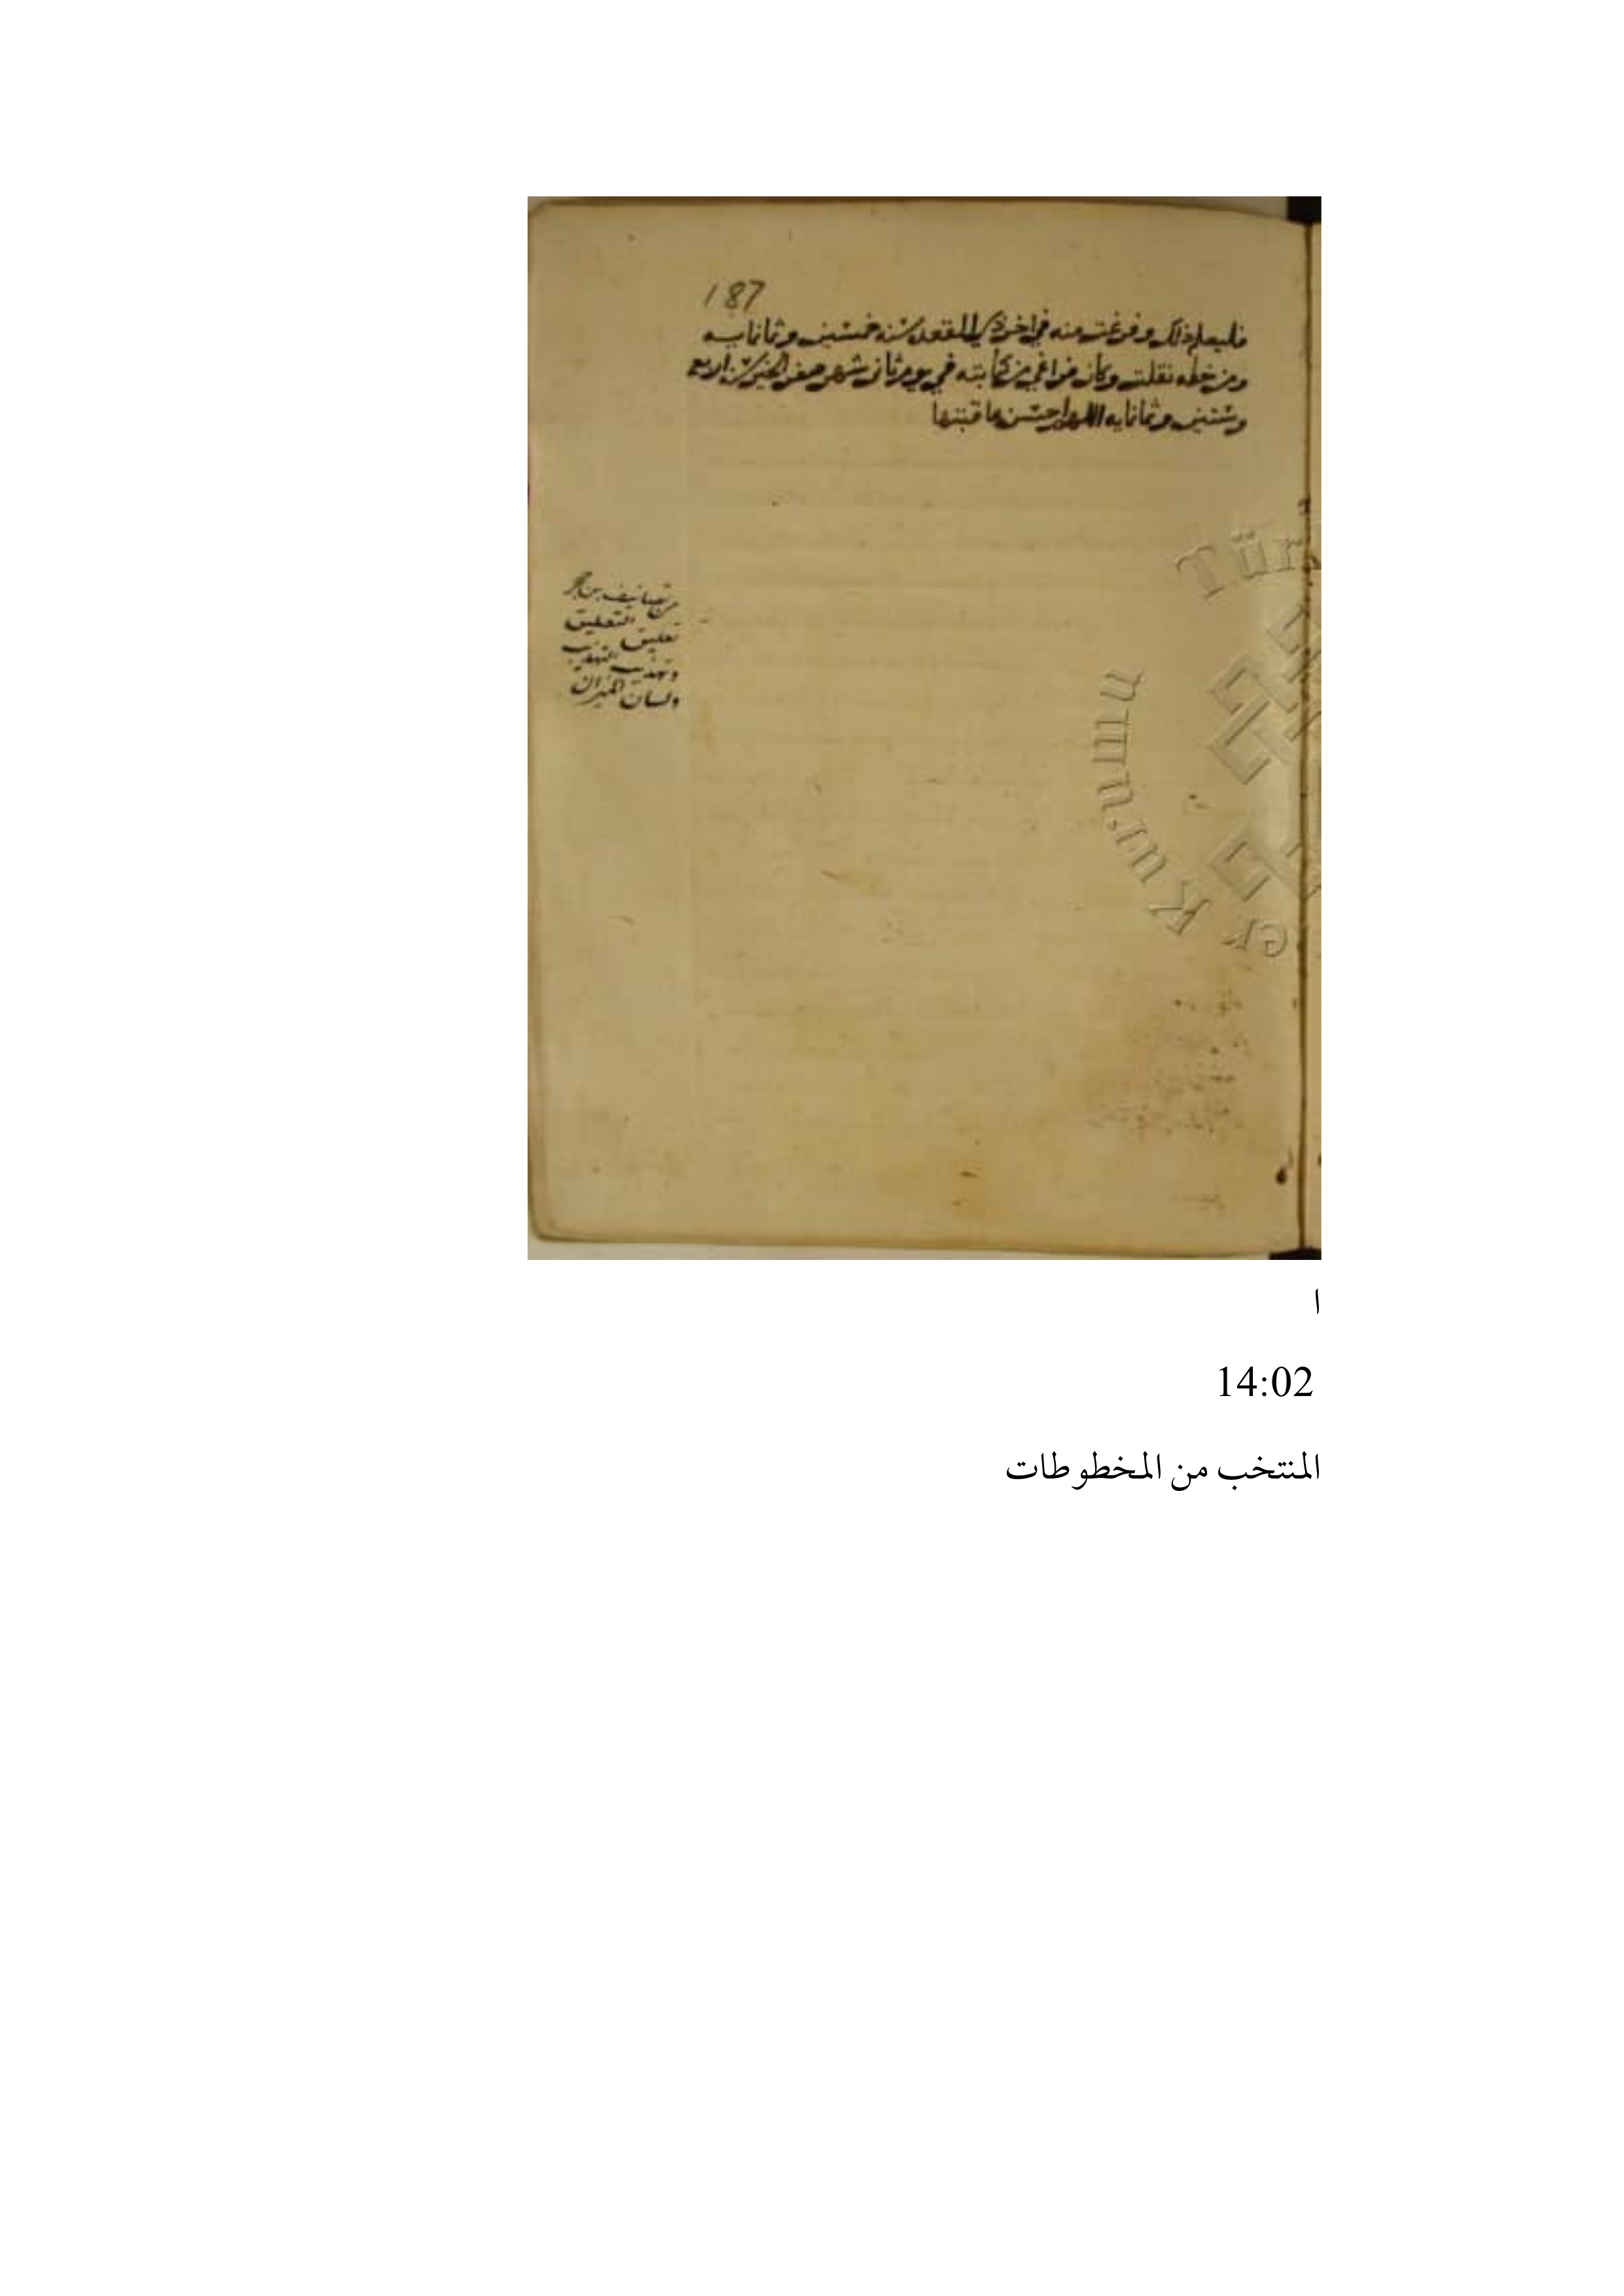 187
فليعلم ذلك وفرغت منه في اخر ذي القعدة سنه خمسين وثمانمايه
ومن خطه نقلت وكان فراغي من كتابته في يوم ثاني شهر صفر الخير سنة اربع
وستين وثمانمايه اللهم احسن عاقبتها
من تصانيف بن حجر
تعليق التعليق
وتهذيب التهذيب
ولسان الميزان
Tür
er Kurumu
ا
14:02
المنتخب من المخطوطات